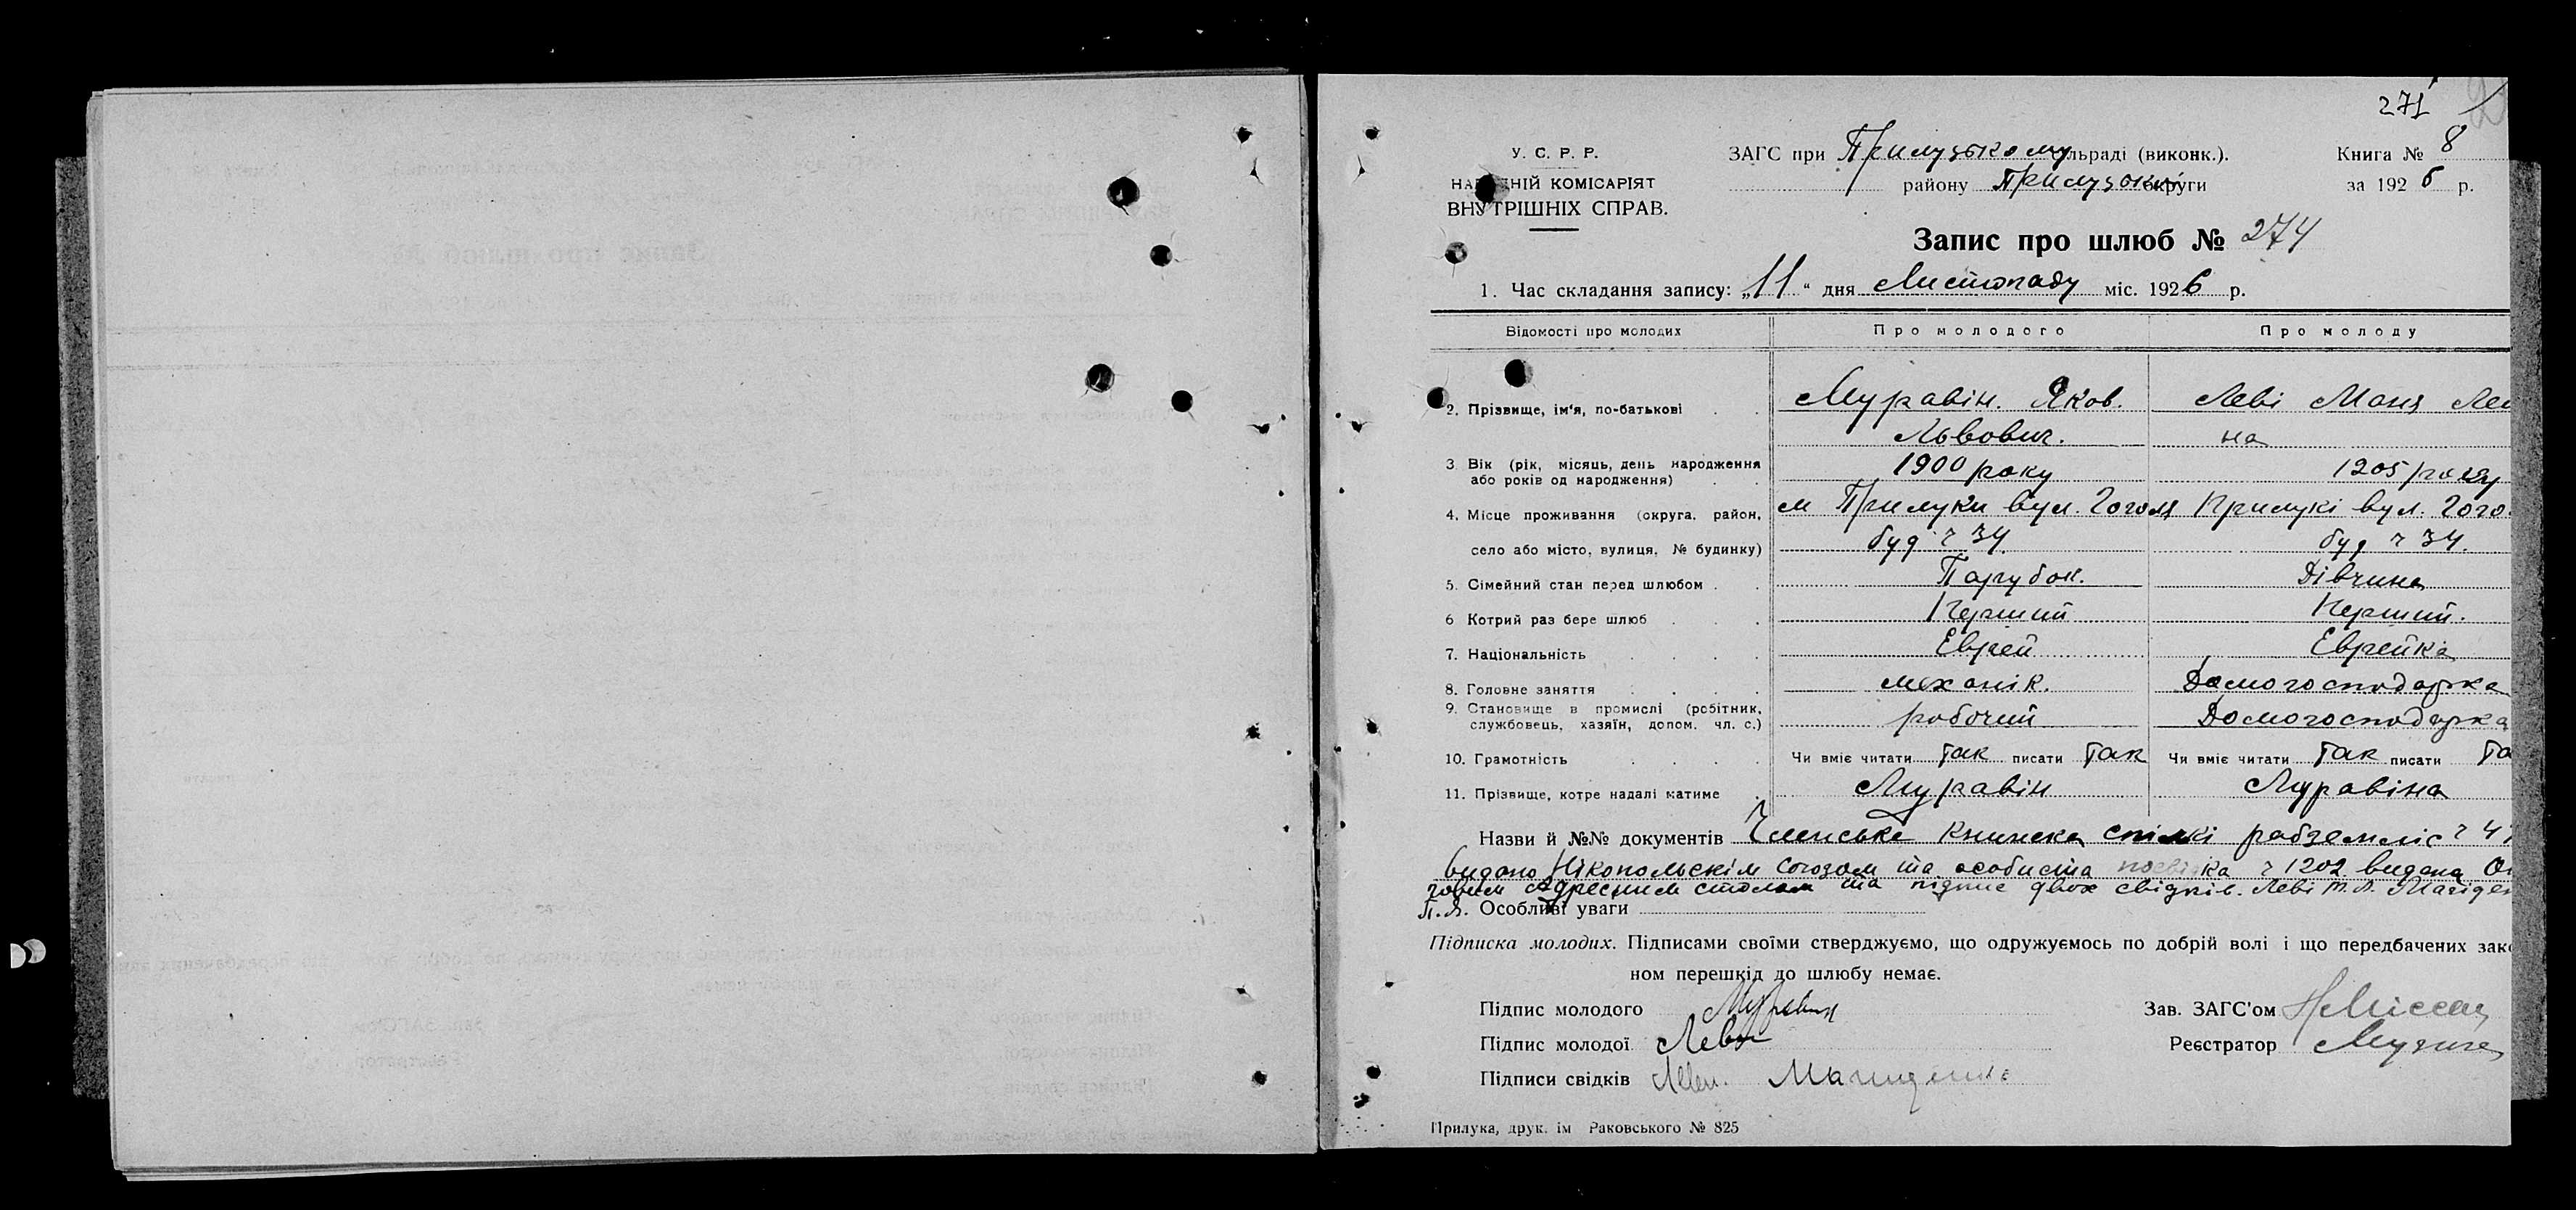 271
У. С. Р. Р.
ЗАГС при Прилуцькому сільраді (виконк.).
Книга № 8
НАРОДНІЙ КОМІСАРІЯТ
району Прилуцькій округи
за 1926 р.
ВНУТРІШНІХ СПРАВ.
Запис про шлюб № 274
1. Час складання запису: „11“ дня Листопаду міс. 1926 р.
Відомості про молодих Про молодого Про молоду
2. Прізвище, ім'я, по-батькові Муравін. Яков. Леві Маня
Львович. на
3. Вік (рік, місяць, день народження 1900 року 1905 року
або років од народження)
4. Місце проживання (округа, район, м Прилуки вул. Гоголя Прилукі вул. Гого
село або місто, вулиця, № будинку) буд ч 34. буд ч 34.
5. Сімейний стан перед шлюбом Парубок. Дівчина
6 Котрий раз бере шлюб Перший Перший.
7. Національність Еврей Еврейка
8. Головне заняття механік. Домогосподарка
9. Становище в промислі (робітник, робочий Домогосподарка
службовець, хазяїн, допом. чл. с.)
10. Грамотність Чи вміє читати так писати так Чи вміє читати так писати та
11. Прізвище, котре надалі матиме Муравін Муравіна
Назви й №№ документів Членське книжка спілкі рабземліс ч 4
видано Нікопольскім союзом та особиста ка ч 1202 видана
адресним столом та підпис двох свідків. Леві
П.Я. Особливі уваги
Підписка молодих. Підписами своїми стверджуємо, що одружуємось по добрій волі і що передбачених зако
ном перешкід до шлюбу немає.
Підпис молодого Муравин Зав. ЗАГС'ом
Підпис молодої Леви Реєстратор
Підписи свідків
Прилука, друк. ім Раковського № 825